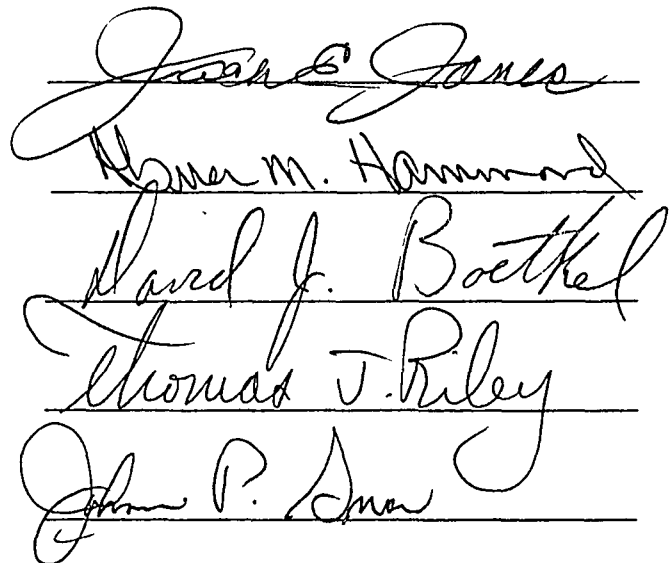 E. Jones
M. Hammond
David J. Boethel
Thomas J. Riley
John P. Snow